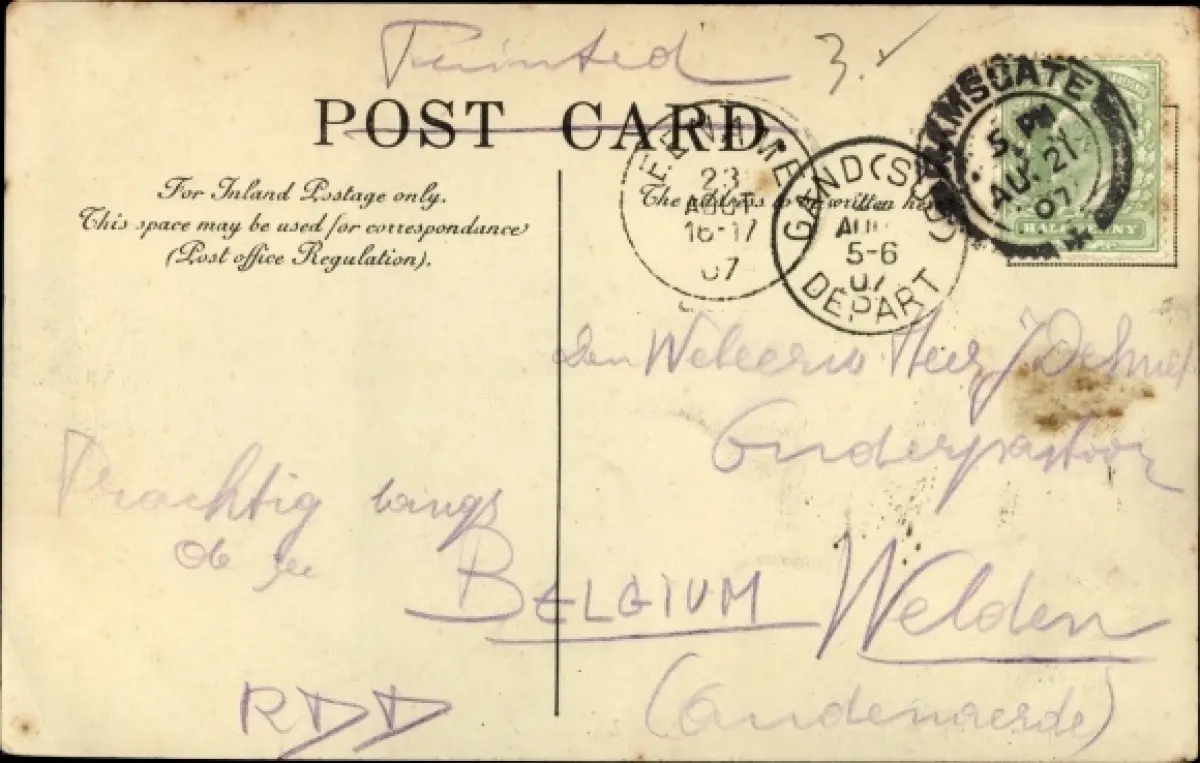 Printed 3.
POST CARD.
For Inland Postage only.
This space may be used for correspondence
(Post office Regulation).
The address to be written here
EENAME
23
AOUT
16-17
07
GAND (SUD)
AOU
5-6
07
DEPART
RAMSGATE
5 PM
AU 21
07
HALFPENNY
den Weleerw Heer J Desmet
Onderpastoor
Prachtig langs
de zee
BELGIUM Welden
(Audenaerde)
RDD